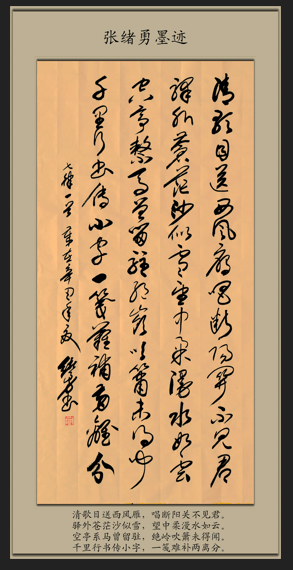 张绪勇墨迹
清歌目送西风雁唱断阳关不见君
驿外苍茫沙似雪望中柔漫水如云
空亭系马曾留驻绝岭吹箫未得闻
千里行书传小字一笺难补两离分
七律一首
清歌目送西风雁，唱断阳关不见君。
驿外苍茫沙似雪，望中柔漫水如云。
空亭系马曾留驻，绝岭吹萧未得闻。
千里行书传小字，一笺难补两离分。